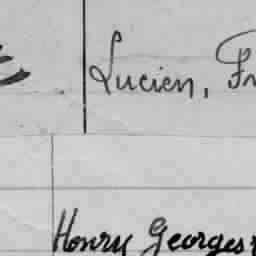 Lucien, Fr
Henry Georges